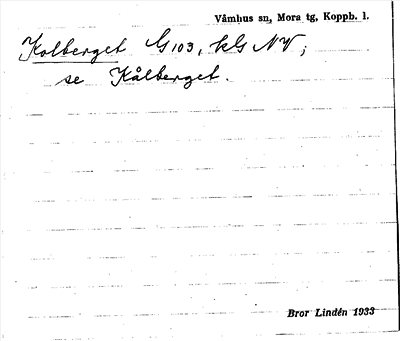 Våmhus sn, Mora tg, Koppb. l.
Kolberget G103, kG NV;
se Kålberget.
Bror Lindén 1933